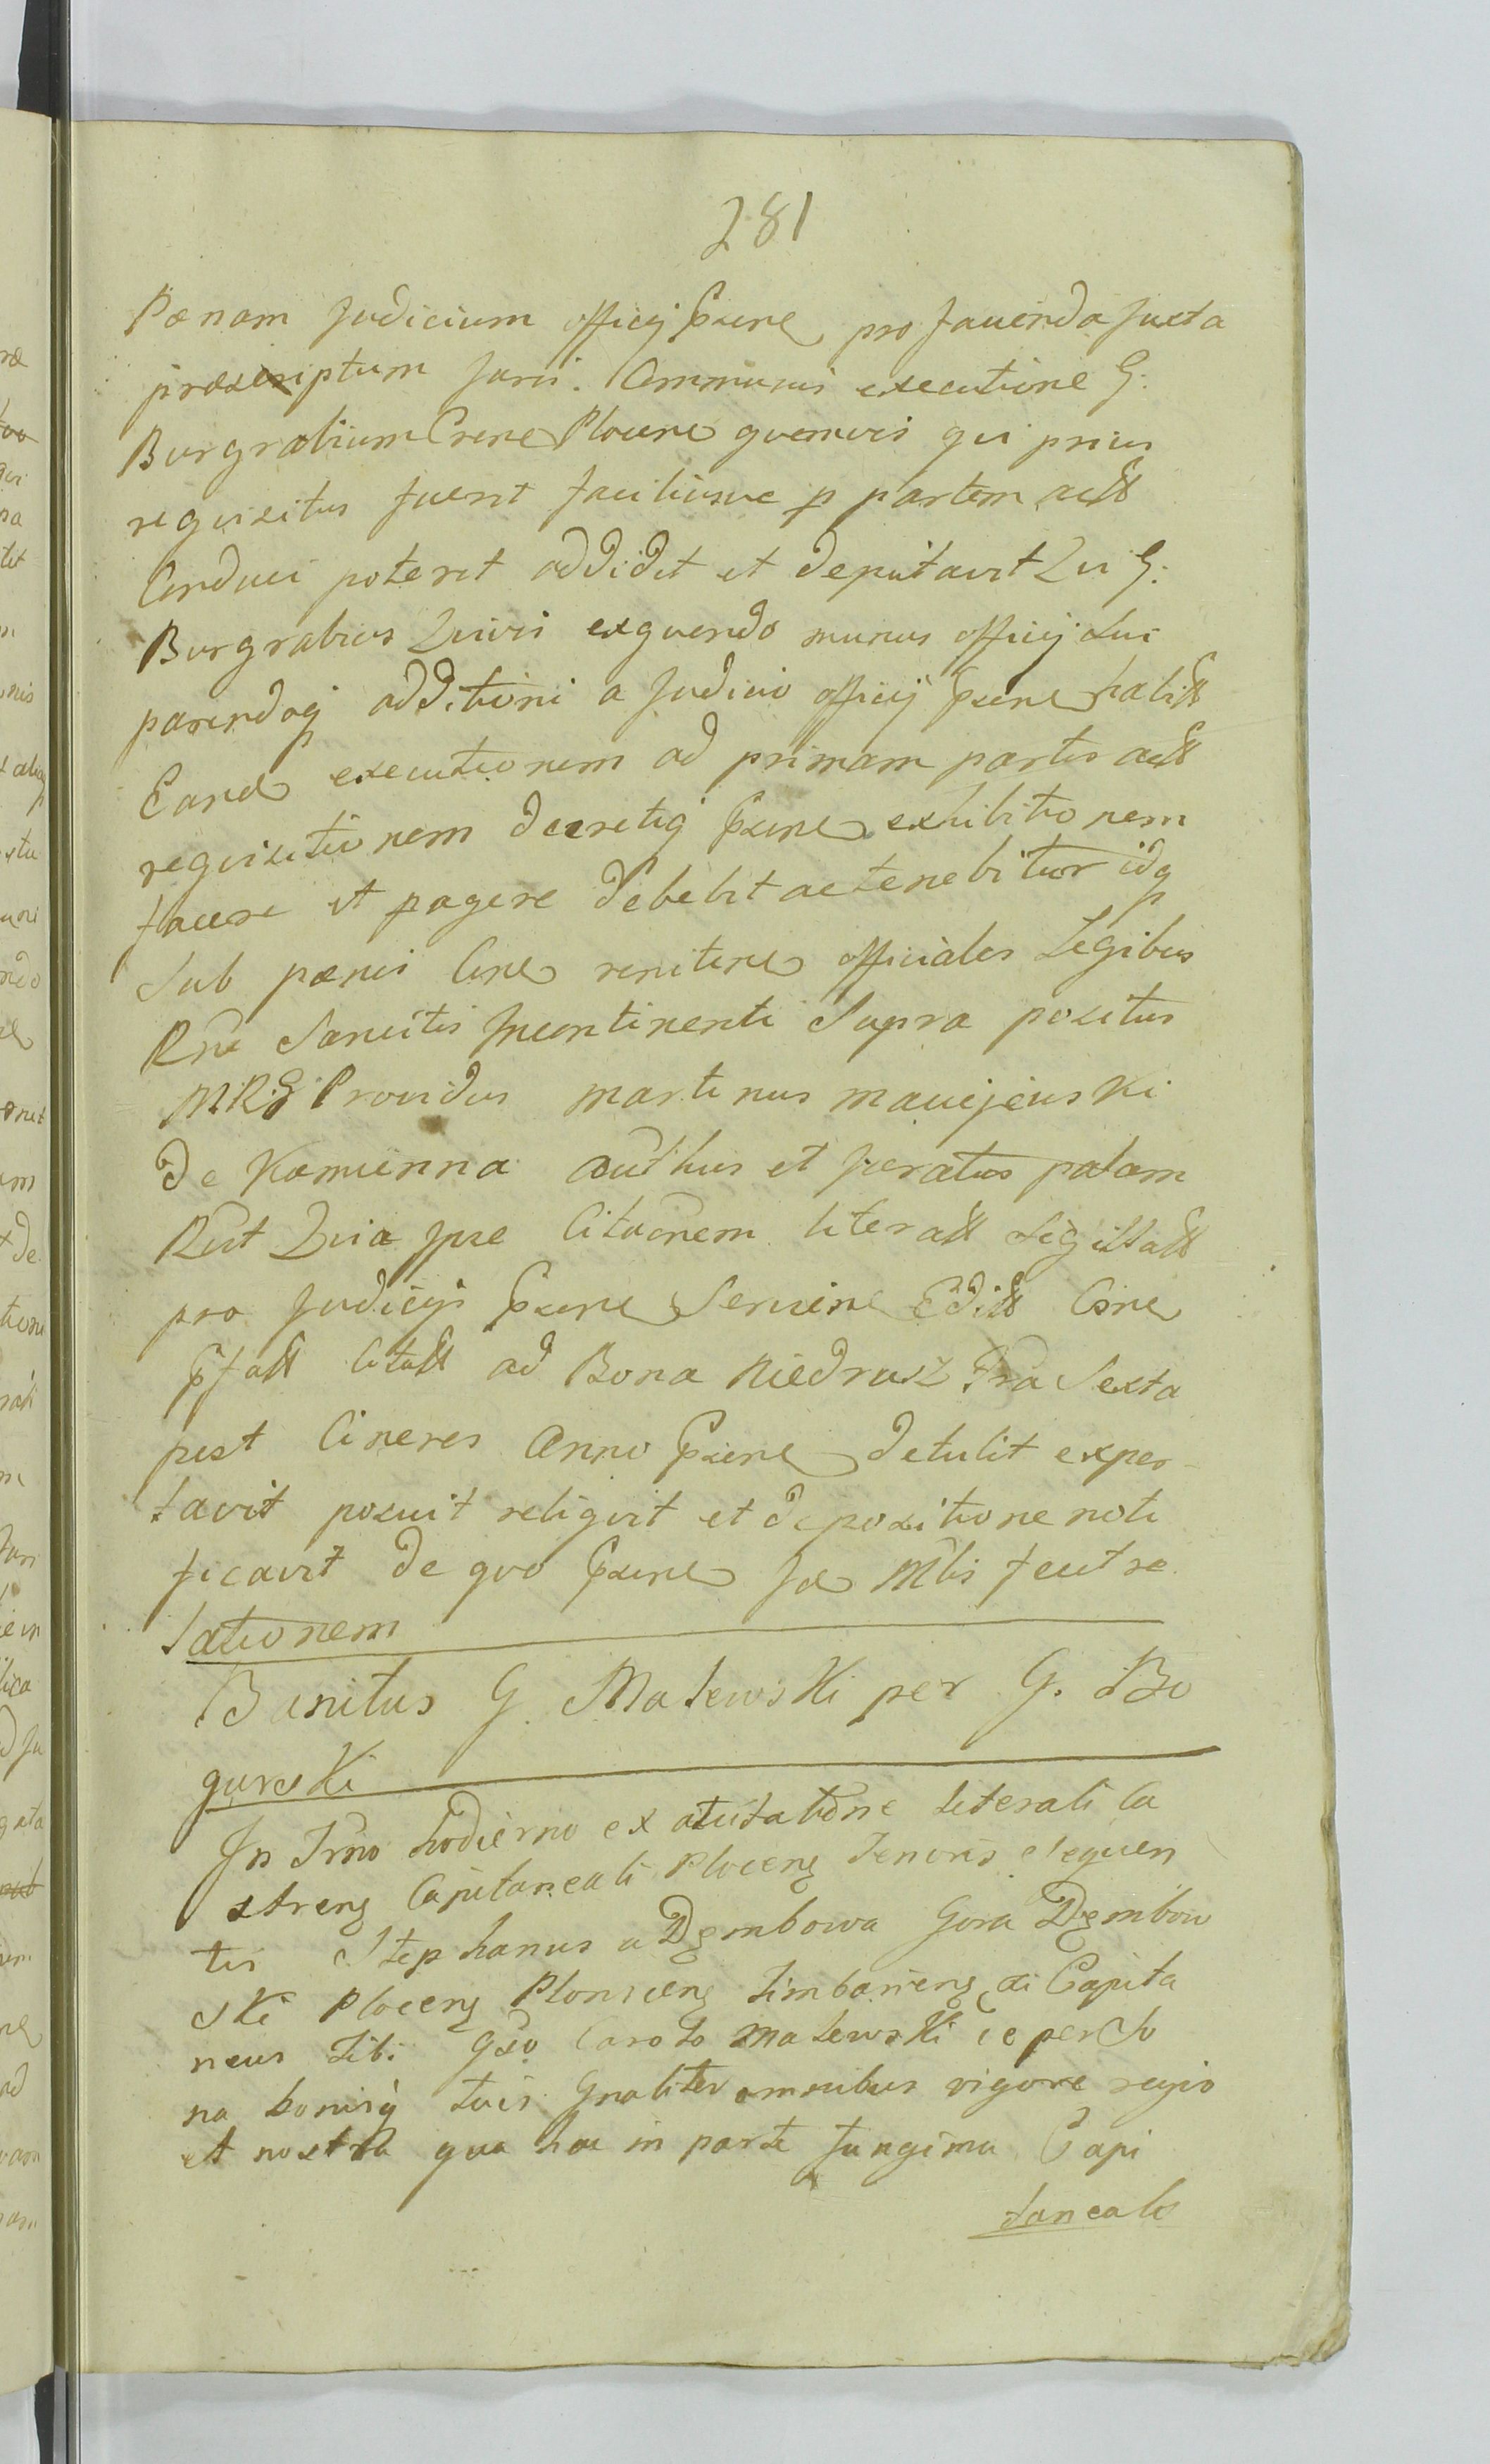 281
Pœnam Judicium officij Pzene pro fauenda Juxta
præscriptum Juris. Communis executione G:
Burgrabium Crene Plocene quemvis qui prius
requisitus fuerit faciliusve p partem actt
Conduci poterit addidit et deputavit Qui G:
Burgrabius Quivis exquendo munus officij Sui
parendoq additioni a Judicio officij Pzene habitt
Eand executionem ad primam partis actt
requisitionem decretiq Pzene exhibitionem
facere et pagere debebit ac tenebitur idq
Sub pænis Cone renitene officiales Legibus
Rni Sancitis Incontinenti Supra positus
MRG Providus Martinus Maciejeuski
de Kamienna authus et Juratus palam
Rcit Quia Ipse Citaonem literatt Sigillatt
pro Judicijs Pzene Serviene Editt Cone
Pfatt Citatt ad Bona Niedrusz Fra Sexta
post Cineres Anno Pzene detulit expor-
tavit posuit reliqvit et de positione noti
ficavit de quo Pzene Sœ Mlis fecit re
lationem
Banitus G. Malewski per G. Bo
gurski
In Trno hodierno ex citatione literali Ca
streng Capitaneali Ploceng Tenoris sequen
tis Stephanus a Dęmbowa Gora Dęmbow
ski Ploceng Plonsceng Timbarieng &c Capita
neus Tibi Gso Carolo Malewski ce perso
na bonisq tuis Gnaliter omnibus vigore regio
et nostra qua hac in parte fungimu Capi
taneale